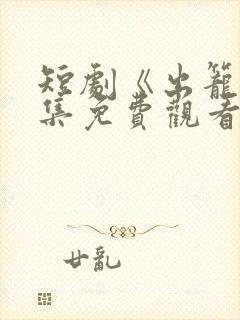 短劇《出籠
集免費觀看
廿亂